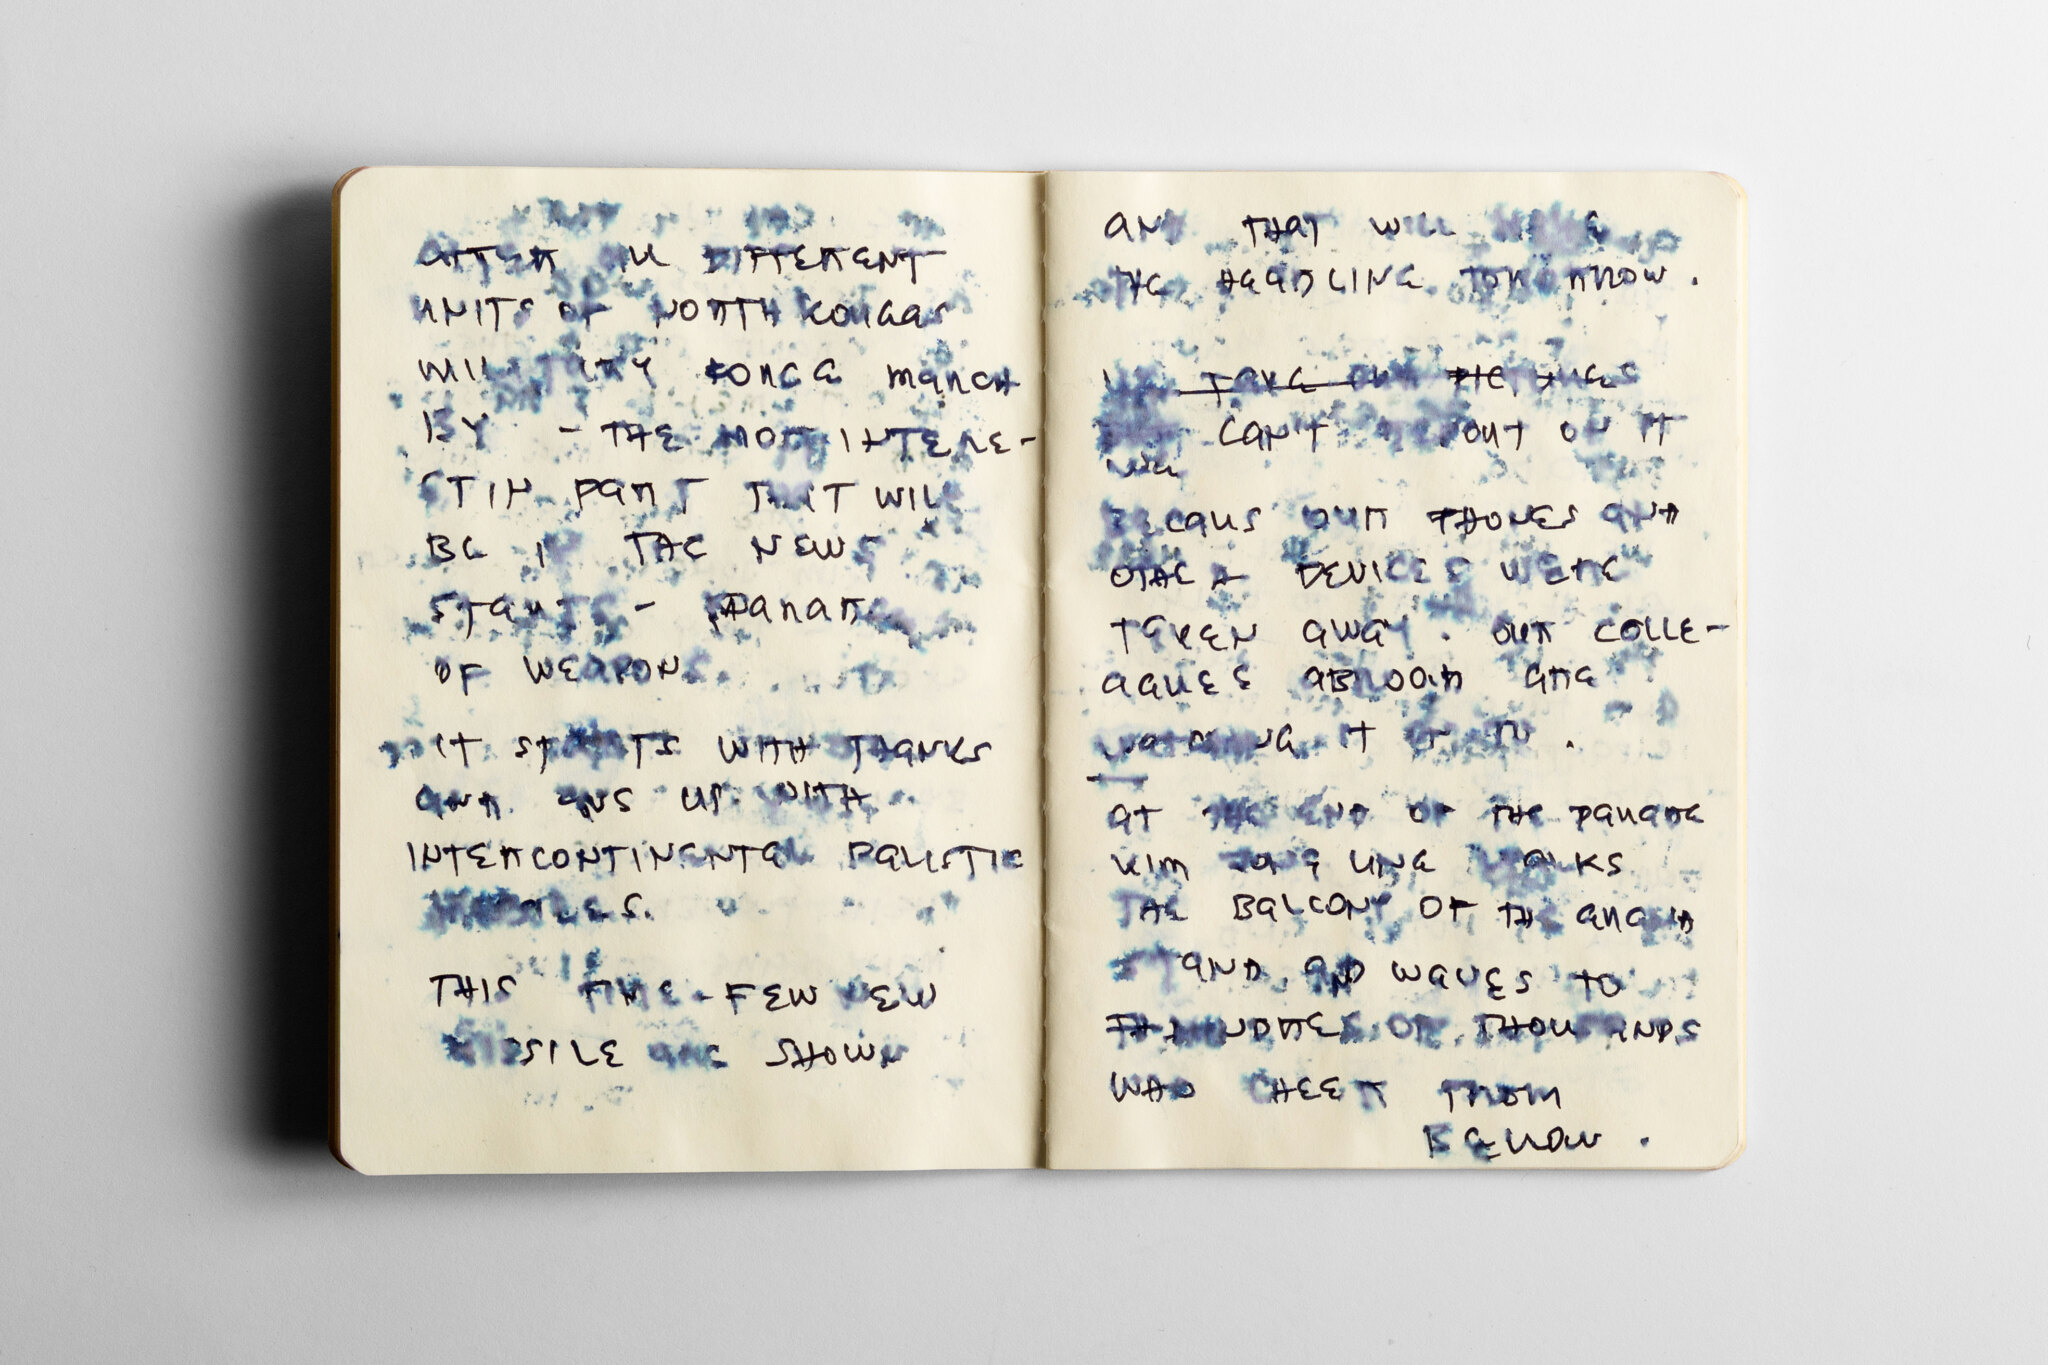 AFTER ALL DIFFERENT
UNITS OF NORTH KOREAS
MILITARY FORCE MARCH
BY - THE MOST INTERE-
STIN PART THAT WILL
BE IN THE NEWS
STARTS - PARADE
OF WEAPONS.
IT STARTS WITH TANKS
AND ENS UP WITH
INTERCONTINENTAL BALISTIC
MISSILES.
THIS TIME - FEW NEW
MISSILE ARE SHOWN
AND THAT WILL MAKE
THE HEADLINE TOMORROW.
WE TAKE OUR PICTURES
CAN'T REPORT ON IT
LIVE
BECAUS OUR PHONES AND
OTHER DEVICES WERE
TAKEN AWAY. OUR COLLE-
AGUES ABROAD ARE
WATCHING IT ON TV.
AT THE END OF THE PARADE
KIM JONG UNE WALKS
THE BALCONY OF THE GRAND
STAND AND WAVES TO
THOUSANDS
WHO CHEER FROM
BELLOW.